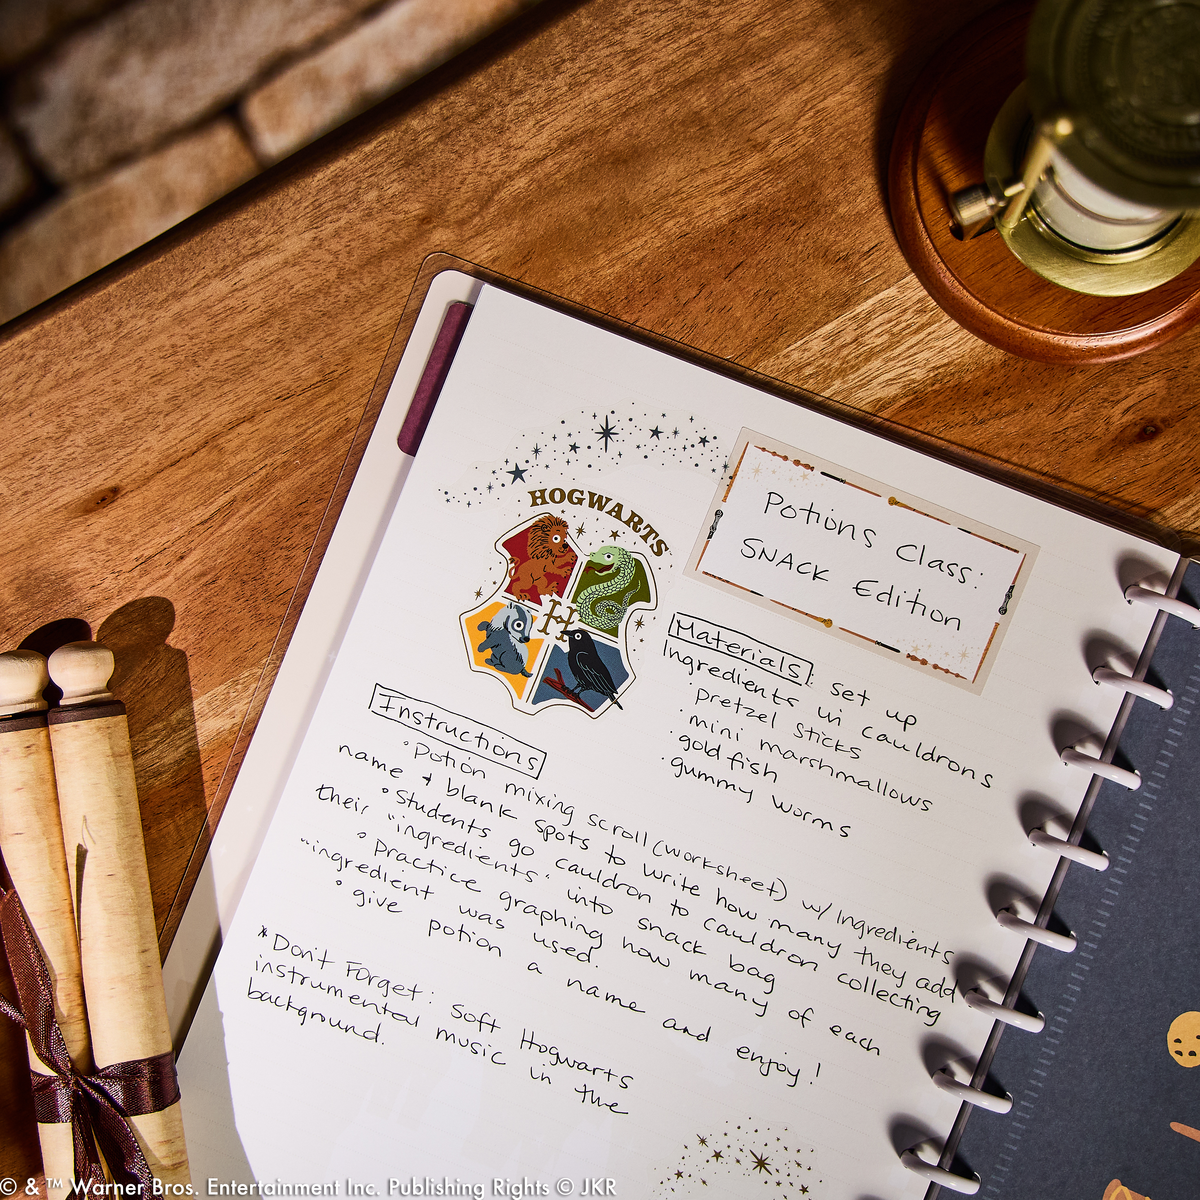 HOGWARTS
H
Potions Class:
SNACK Edition
Materials: set up
Ingredients in cauldrons
· pretzel sticks
· mini marshmallows
· goldfish
· gummy worms
Instructions
° Potion mixing scroll (worksheet) w/ Ingredients
name & blank spots to write how many they add
° Students go cauldron to cauldron collecting
their "ingredients" into snack bag
° Practice graphing how many of each
"ingredient was used.
° give potion a name and enjoy!
* Don't Forget: soft Hogwarts
instrumental music in the
background.
© & ™ Warner Bros. Entertainment Inc. Publishing Rights © JKR